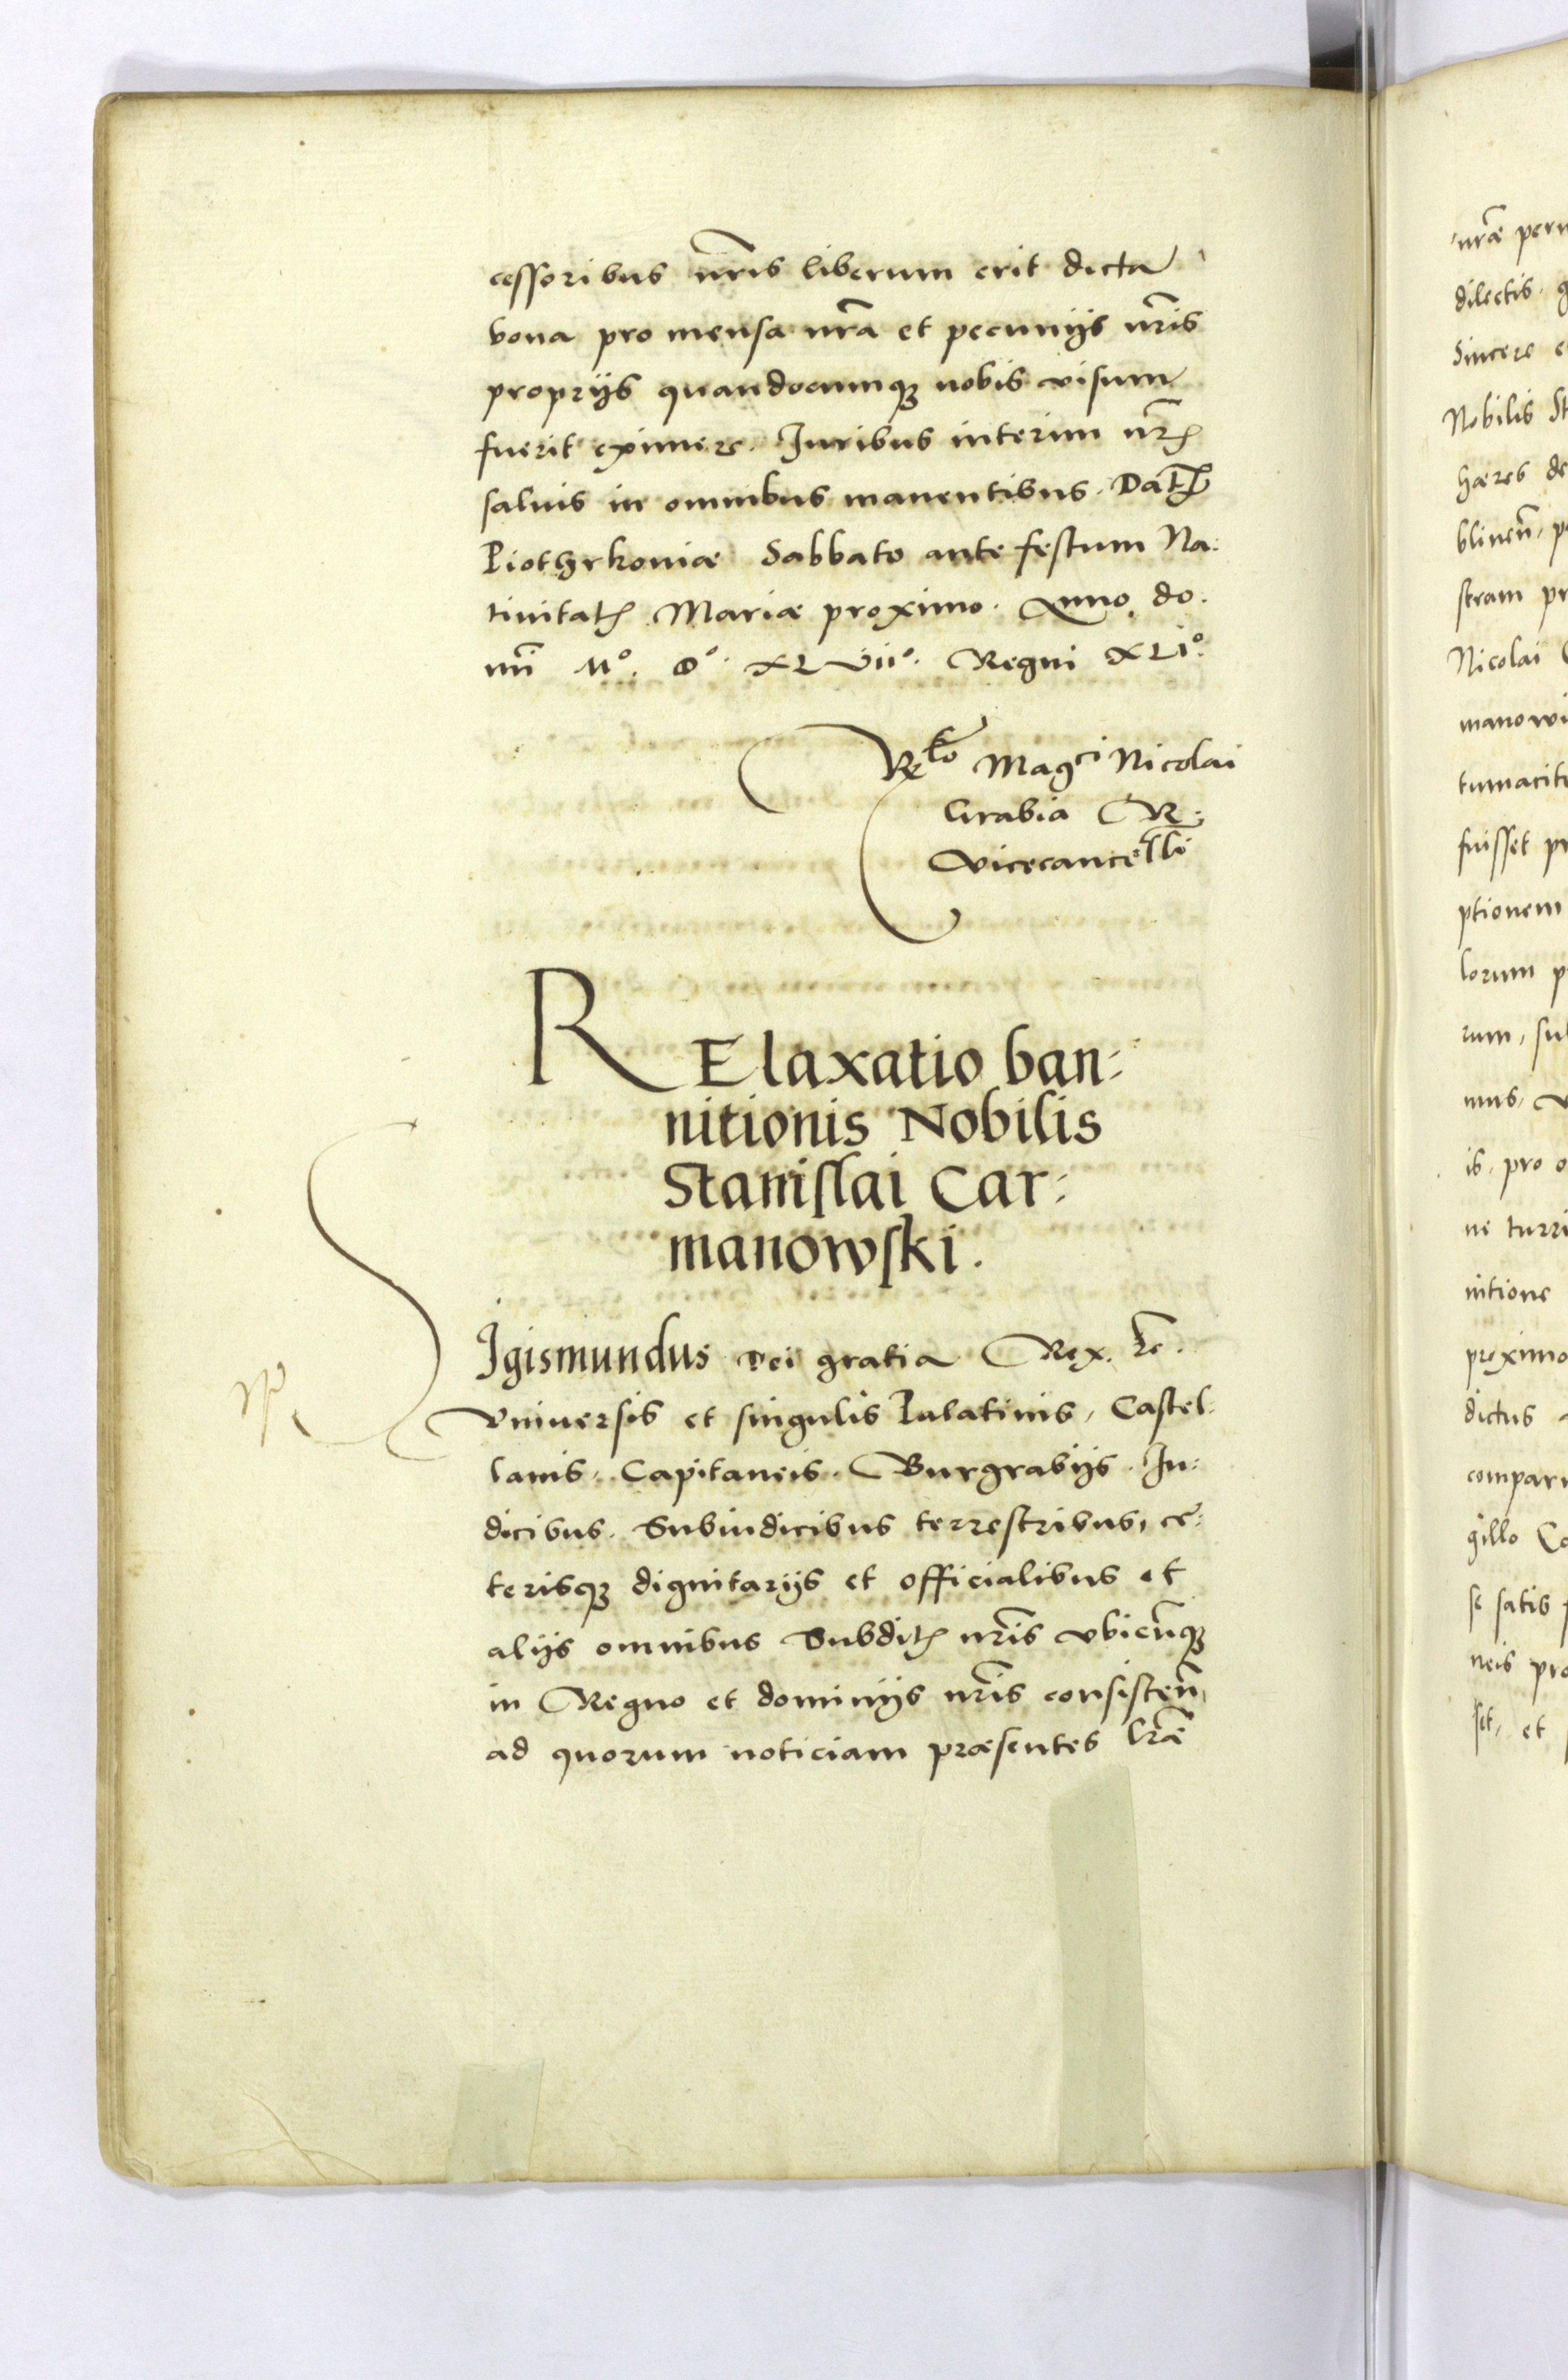 cessoribus nr̃is liberum erit dicta
bona pro mensa nr̃a et pecunijs nr̃is
proprijs quandocumqꝫ nobis visum
fuerit eximere. Iuribus interim nr̃ꝭ
saluis in omnibus manentibus. Datꝭ
Piothrkoniæ Sabbato ante festum Na:
tiuitatꝭ Mariæ proximo. Anno do:
mñi Mº. Dº. XLVIIº. Regni XLIº.
Relo Magci Nicolai
Grabia R.
Vicecancelli
RElaxatio ban:
nitionis Nobilis
Stanislai Car:
manowski.
SIgismundus Dei gratia Rex. &c.
Vniuersis et singulis Palatinis, Castel:
lanis, Capitaneis, Burgrabijs, Iu:
dicibus, Subiudicibus terrestribus, ce:
terisqꝫ dignitarijs et officialibus et
alijs omnibus Subditꝭ nr̃is vbicũqꝫ
in Regno et dominijs nr̃is consisteñ,
ad quorum noticiam præsentes lr̃æ
nr̃æ
dilectis
sincere
Nobilis
hæres de
blineñ,
stram
Nicolai
fuisset
ptionem
lorum
rum,
mus,
is, pro
ne
nitione
proximo
dictus
gillo
se satis
neis
set, et